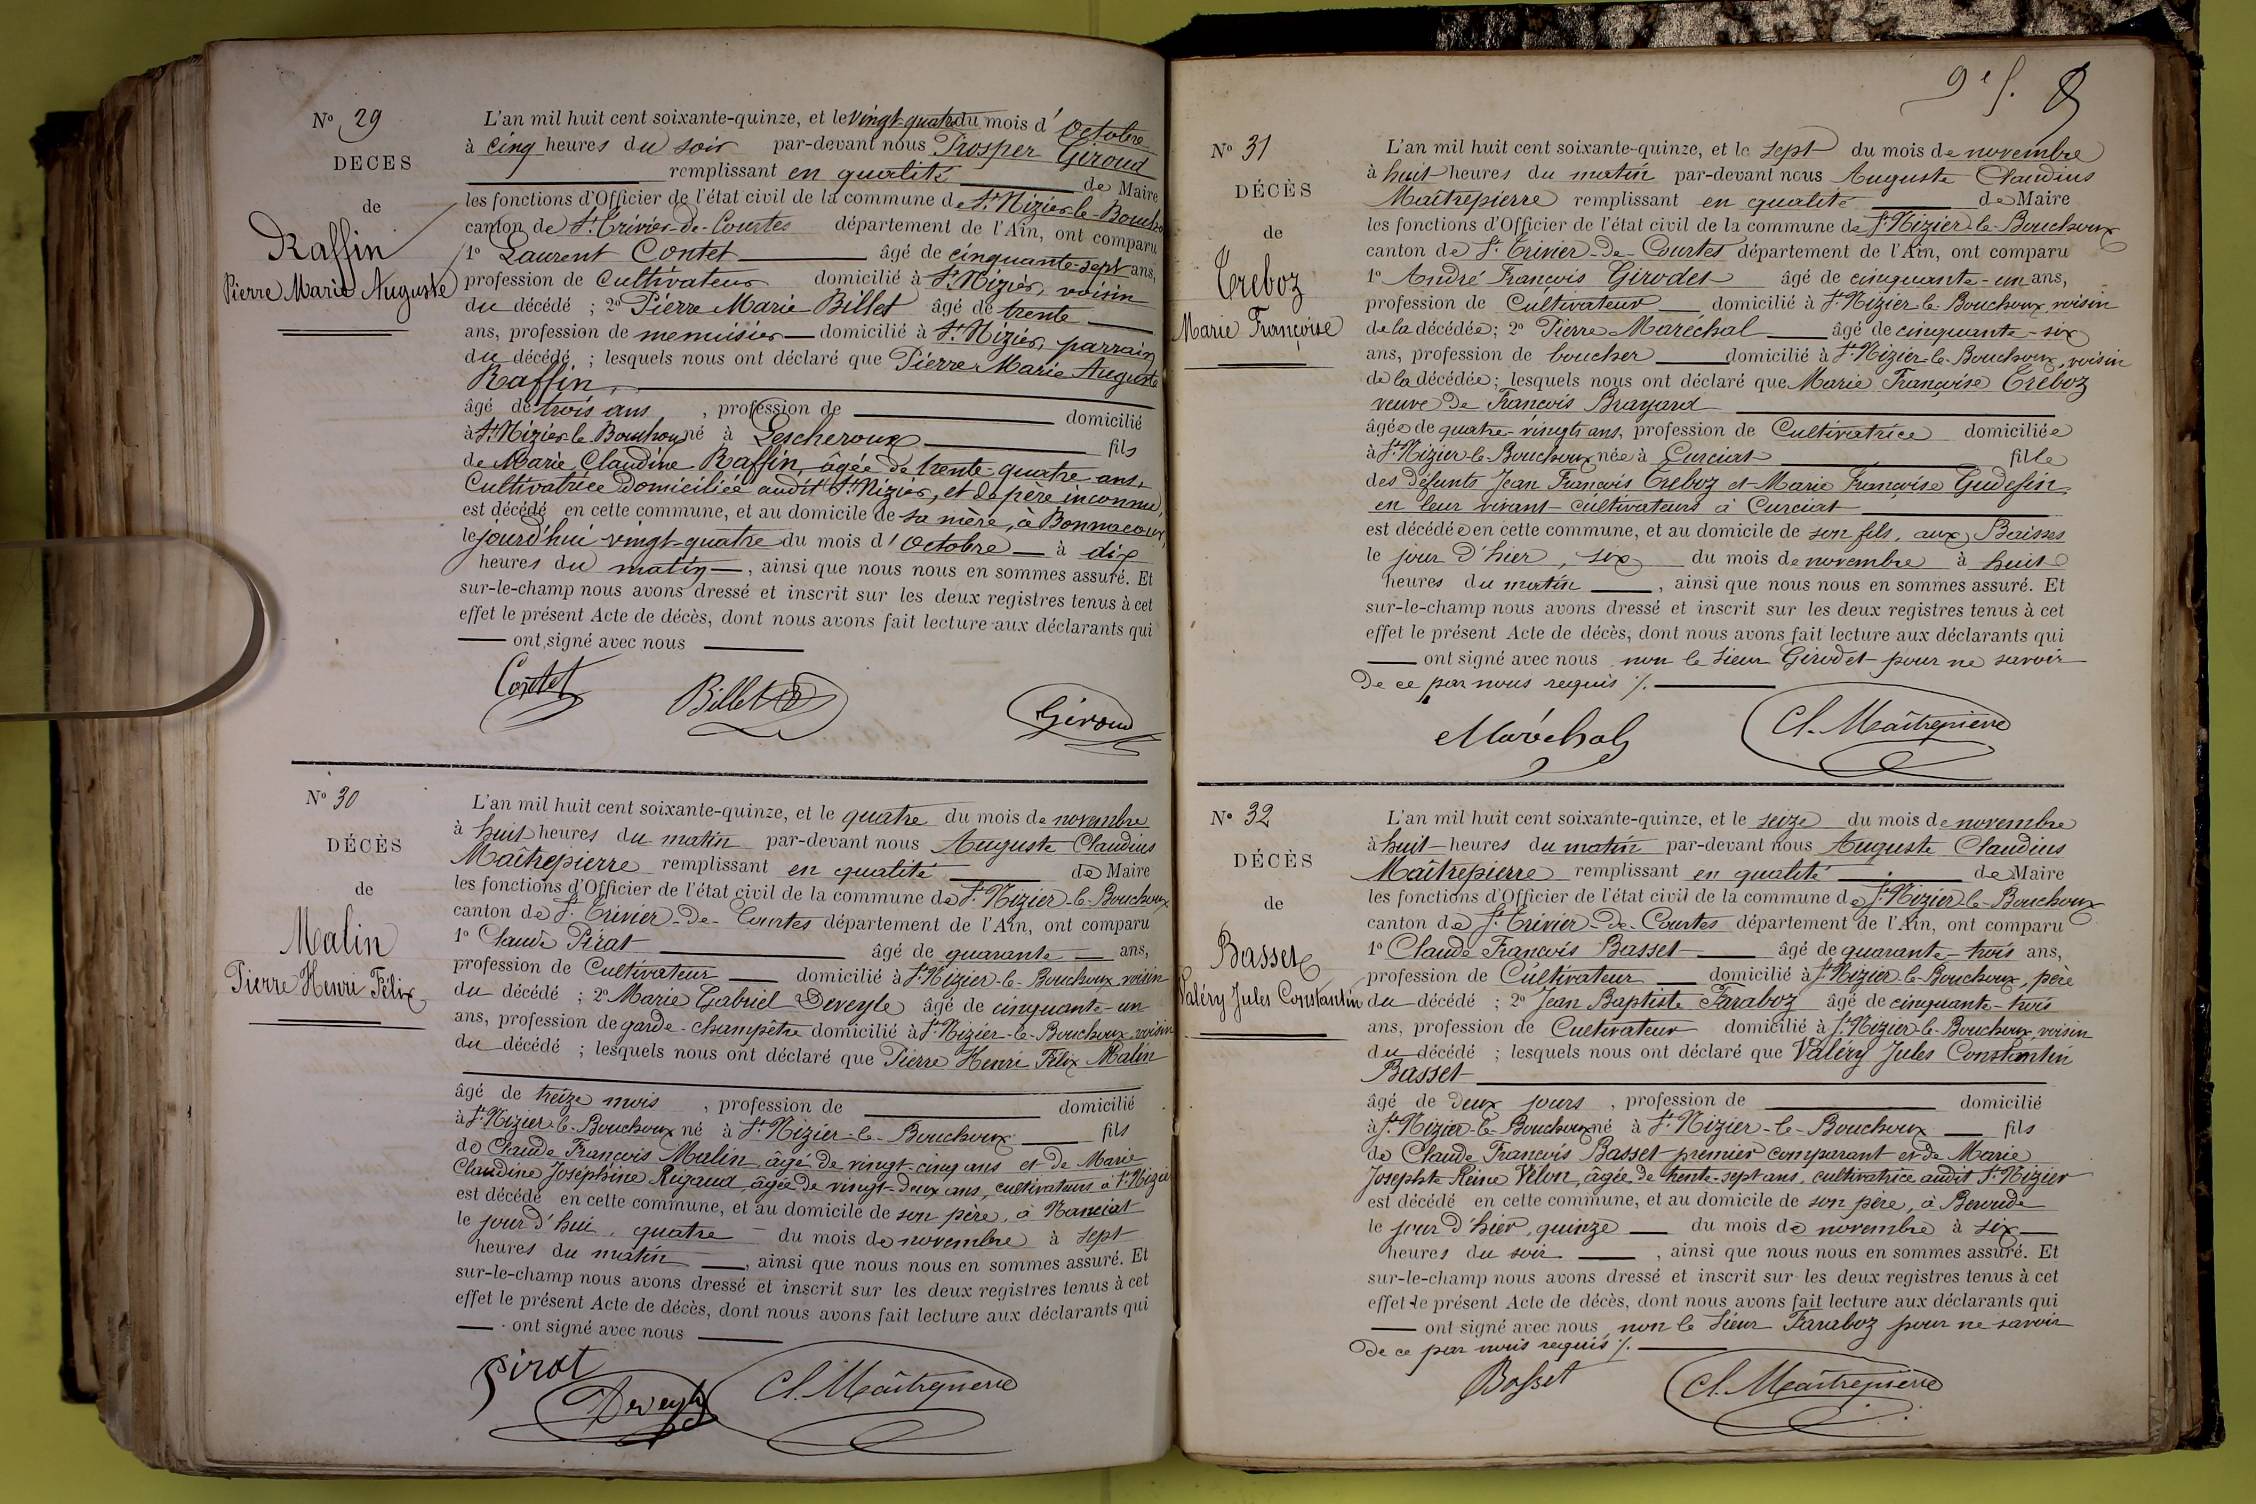 Nº 29
DÉCÈS
de
Raffin
Pierre Marie Auguste
L'an mil huit cent soixante-quinze, et le vingt-quatre du mois d'Octobre
à cinq heures du soir par-devant nous Prosper Giroud
remplissant en qualité de Maire
les fonctions d'Officier de l'état civil de la commune de St. Nizier-le-Bouchoux
canton de St. Trivier-de-Courtes département de l'Ain, ont comparu
1º Laurent Contet âgé de cinquante-sept ans,
profession de Cultivateur domicilié à St. Nizier, voisin
du décédé ; 2º Pierre Marie Billet âgé de trente
ans, profession de menuisier domicilié à St. Nizier, parrain
du décédé ; lesquels nous ont déclaré que Pierre Marie Auguste
Raffin,
âgé de trois ans, profession de domicilié
à St. Nizier-le-Bouchoux né à Lescheroux fils
de Marie Claudine Raffin, âgée de trente-quatre ans,
Cultivatrice domiciliée audit St. Nizier, et de père inconnu,
est décédé en cette commune, et au domicile de sa mère, à Bonnacour,
le jourd'hui vingt-quatre du mois d'Octobre à dix
heures du matin, ainsi que nous nous en sommes assuré. Et
sur-le-champ nous avons dressé et inscrit sur les deux registres tenus à cet
effet le présent Acte de décès, dont nous avons fait lecture aux déclarants qui
ont signé avec nous
Contet Billet Giroud
Nº 30
DÉCÈS
de
Malin
Pierre Henri Félix
L'an mil huit cent soixante-quinze, et le quatre du mois de novembre
à huit heures du matin par-devant nous Auguste Claudius
Maîtrepierre remplissant en qualité de Maire
les fonctions d'Officier de l'état civil de la commune de St. Nizier-le-Bouchoux
canton de St. Trivier-de-Courtes département de l'Ain, ont comparu
1º Claude Pirat âgé de quarante ans,
profession de Cultivateur domicilié à St. Nizier-le-Bouchoux voisin
du décédé ; 2º Marie Gabriel Deveyle âgé de cinquante-un
ans, profession de garde-champêtre domicilié à St. Nizier-le-Bouchoux voisin
du décédé ; lesquels nous ont déclaré que Pierre Henri Félix Malin
âgé de treize mois, profession de domicilié
à St. Nizier-le-Bouchoux né à St. Nizier-le-Bouchoux fils
de Claude François Malin, âgé de vingt-cinq ans et de Marie
Claudine Joséphine Rigaud, âgée de vingt-deux ans, cultivateurs à St. Nizier
est décédé en cette commune, et au domicile de son père, à Ranciat
le jour d'hui, quatre du mois de novembre à sept
heures du matin, ainsi que nous nous en sommes assuré. Et
sur-le-champ nous avons dressé et inscrit sur les deux registres tenus à cet
effet le présent Acte de décès, dont nous avons fait lecture aux déclarants qui
ont signé avec nous
Pirat Deveyle Cl. Maîtrepierre
9e f. 8
Nº 31
DÉCÈS
de
Treboz
Marie Françoise
L'an mil huit cent soixante-quinze, et le sept du mois de novembre
à huit heures du matin par-devant nous Auguste Claudius
Maîtrepierre remplissant en qualité de Maire
les fonctions d'Officier de l'état civil de la commune de St. Nizier-le-Bouchoux
canton de St. Trivier-de-Courtes département de l'Ain, ont comparu
1º André François Girodet âgé de cinquante-un ans,
profession de Cultivateur domicilié à St. Nizier-le-Bouchoux, voisin
de la décédée ; 2º Pierre Maréchal âgé de cinquante-six
ans, profession de boucher domicilié à St. Nizier-le-Bouchoux, voisin
de la décédée ; lesquels nous ont déclaré que Marie Françoise Treboz
veuve de François Brayard
âgée de quatre-vingts ans, profession de Cultivatrice domiciliée
à St. Nizier-le-Bouchoux née à Curciat fille
des défunts Jean François Treboz et Marie Françoise Gudefin,
en leur vivant cultivateurs à Curciat
est décédée en cette commune, et au domicile de son fils, aux Baisses
le jour d'hier, six du mois de novembre à huit
heures du matin, ainsi que nous nous en sommes assuré. Et
sur-le-champ nous avons dressé et inscrit sur les deux registres tenus à cet
effet le présent Acte de décès, dont nous avons fait lecture aux déclarants qui
ont signé avec nous, non le sieur Girodet pour ne savoir
de ce par nous requis ./.
Maréchal Cl. Maîtrepierre
Nº 32
DÉCÈS
de
Basset
Valéry Jules Constantin
L'an mil huit cent soixante-quinze, et le seize du mois de novembre
à huit heures du matin par-devant nous Auguste Claudius
Maîtrepierre remplissant en qualité de Maire
les fonctions d'Officier de l'état civil de la commune de St. Nizier-le-Bouchoux
canton de St. Trivier-de-Courtes département de l'Ain, ont comparu
1º Claude François Basset âgé de quarante-trois ans,
profession de Cultivateur domicilié à St. Nizier-le-Bouchoux, père
du décédé ; 2º Jean Baptiste Faraboz âgé de cinquante-trois
ans, profession de Cultivateur domicilié à St. Nizier-le-Bouchoux, voisin
du décédé ; lesquels nous ont déclaré que Valéry Jules Constantin
Basset
âgé de deux jours, profession de domicilié
à St. Nizier-le-Bouchoux né à St. Nizier-le-Bouchoux fils
de Claude François Basset premier comparant et de Marie
Josephte Reine Vélon, âgée de trente-sept ans, cultivatrice audit St. Nizier
est décédé en cette commune, et au domicile de son père, à Beviude
le jour d'hier, quinze du mois de novembre à six
heures du soir, ainsi que nous nous en sommes assuré. Et
sur-le-champ nous avons dressé et inscrit sur les deux registres tenus à cet
effet le présent Acte de décès, dont nous avons fait lecture aux déclarants qui
ont signé avec nous, non le sieur Faraboz pour ne savoir
de ce par nous requis ./.
Basset Cl. Maîtrepierre